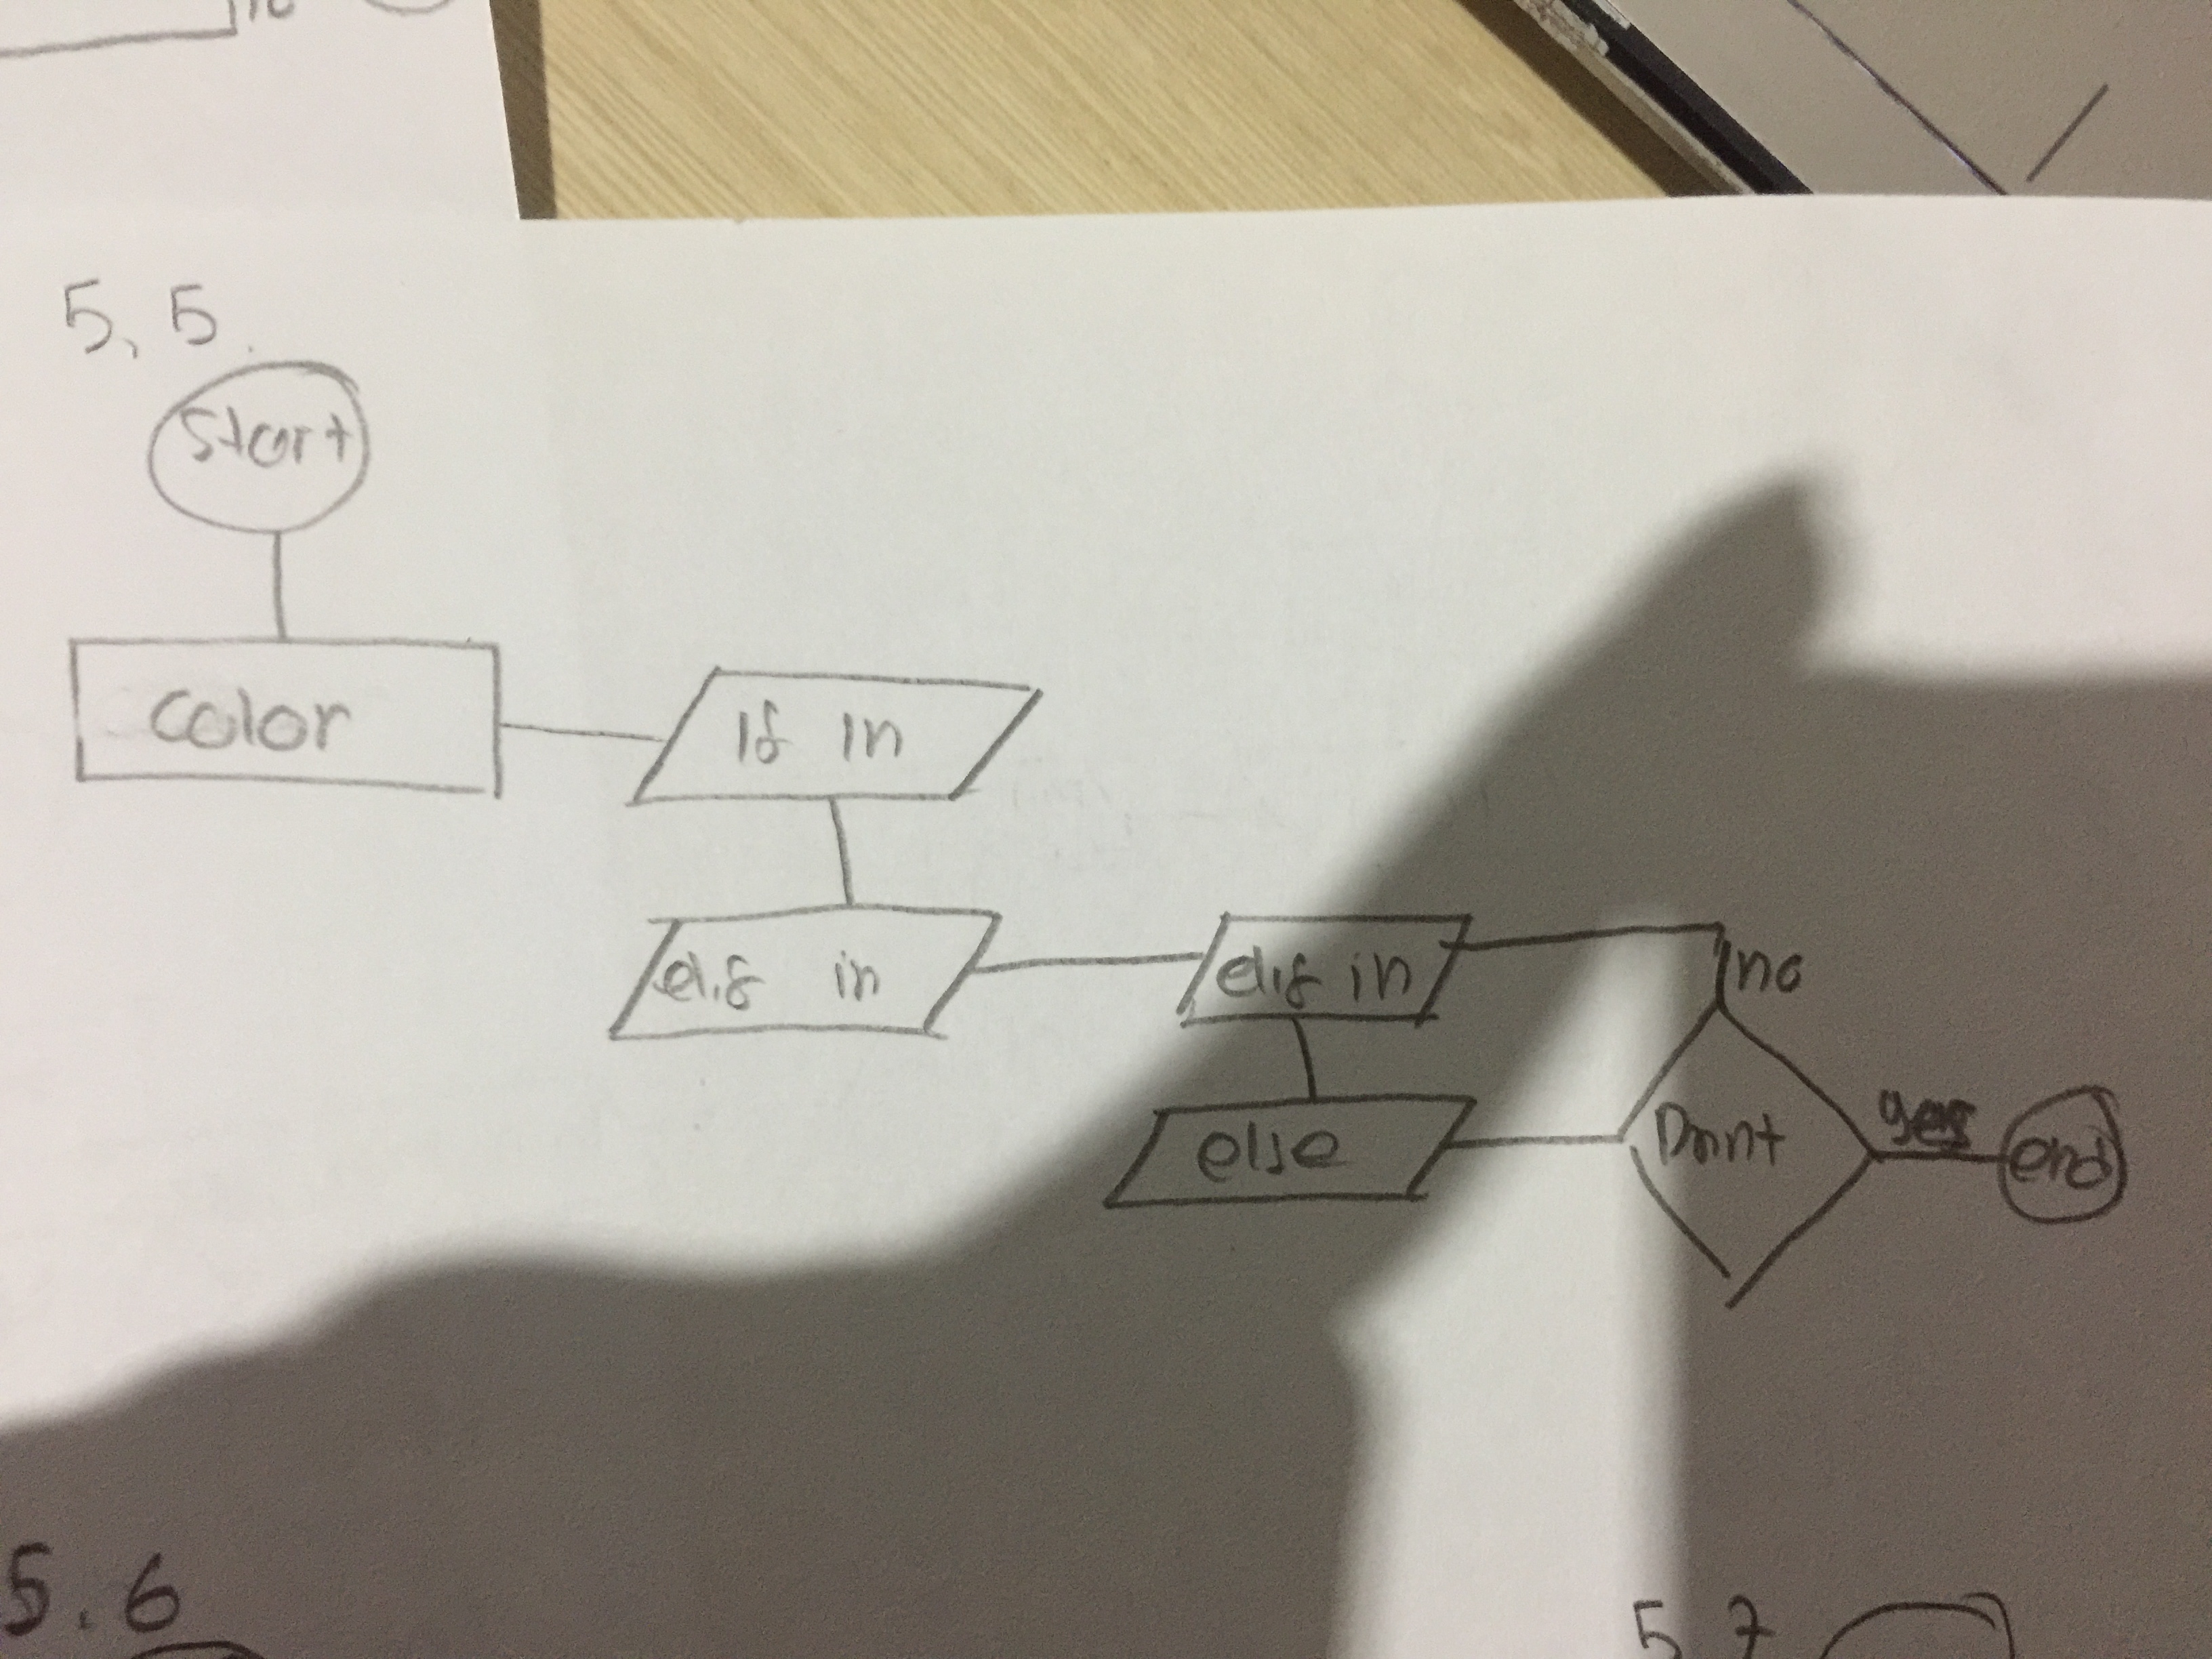 5.5
Start
Color
If in
elif in
elif in
else
Print
no
yes
end
5.6
5.7